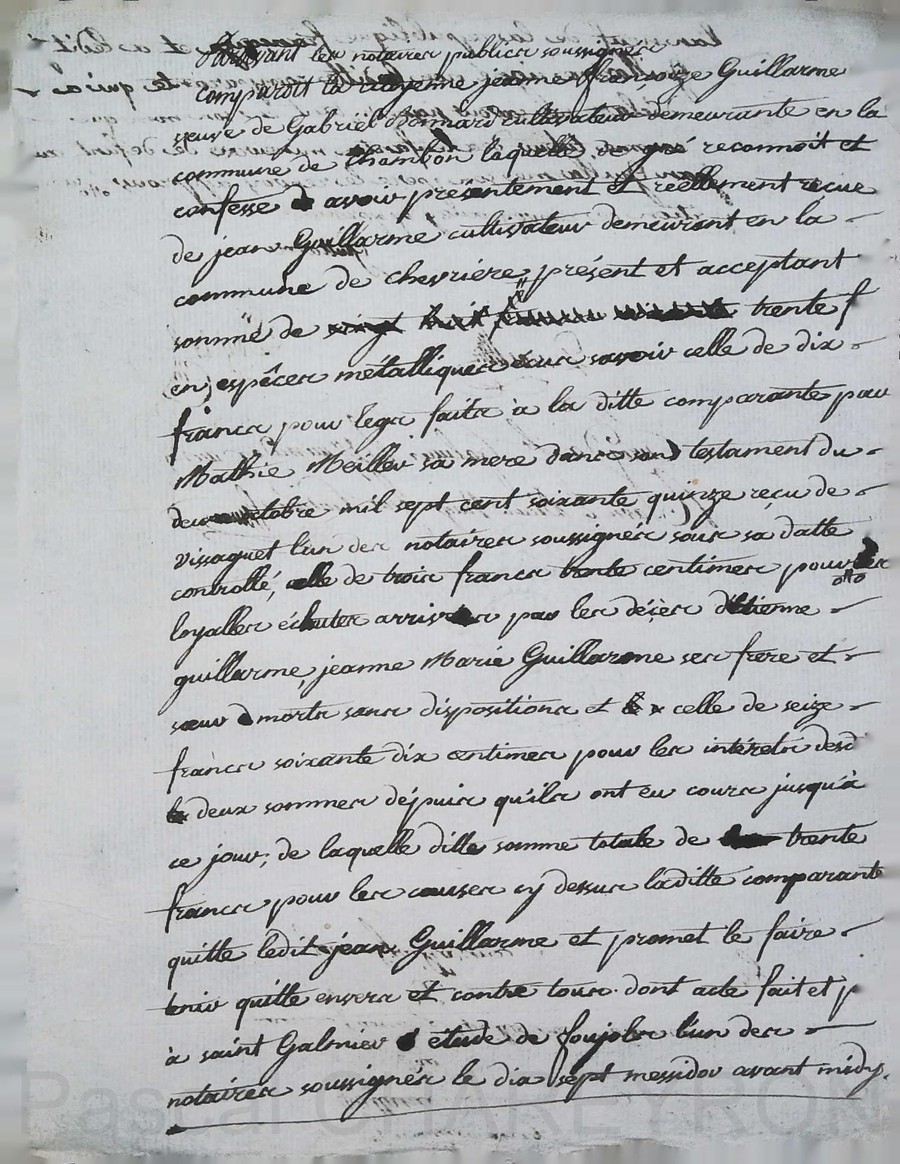 Pardevant les notaires publics soussignés
comparoit la citoyenne jeanne françoize Guillarme
veuve de Gabriël Bonnard cultivateur demeurante en la
commune de Chambon laquelle de gré reconnoit et
confesse avoir présentement et réellement reçue
de jean Guillarme cultivateur demeurant en la
commune de chevriere, présent et acceptant
somme de trente f
en espèces métalliques savoir celle de dix
francs pour legs faits à la ditte comparante par
Mathie Meiller sa mere dans son testament du
octobre mil sept cent soixante quinze reçu de
vissaguet l'un des notaires soussignés sous sa datte
controllé, celle de trois francs trente centimes pour les
loyalles échutes arrivées par les décès d'Etienne
guillarme, jeanne Marie Guillarme ses frere et
sœur morts sans dispositions et celle de seize
francs soixante dix centimes pour les intérets desd
deux sommes dépuis qu'ils ont eu cours jusqu'à
ce jour, de laquelle ditte somme totale de trente
francs pour les causes cy dessus laditte comparante
quitte ledit jean Guillarme et promet le faire
tenir quitte envers et contre tous. dont acte fait et p
à saint Galmier étude de foujols l'un des
notaires soussignés le dix sept messidor avant midy.
Pascal CHARLEYRON